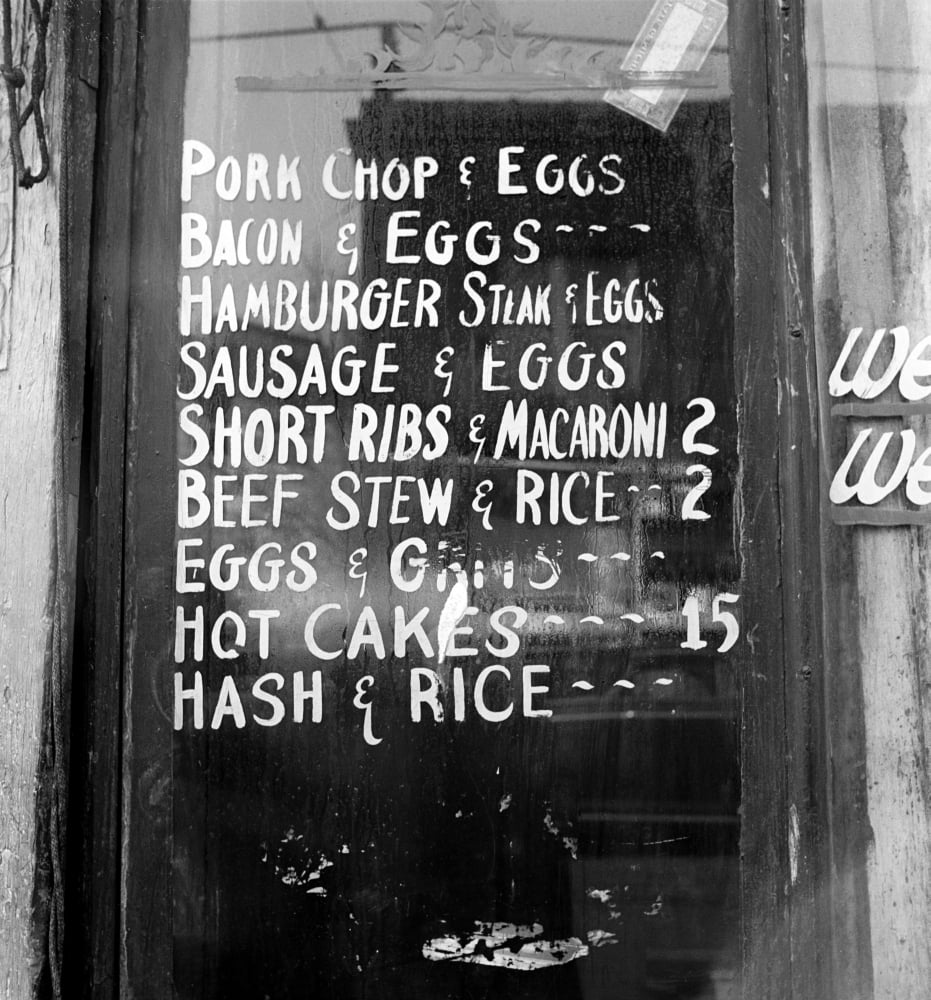 PORK CHOP & EGGS
BACON & EGGS---
HAMBURGER STEAK & EGGS
SAUSAGE & EGGS
SHORT RIBS & MACARONI 2
BEEF STEW & RICE-- 2
EGGS & GRITS ---
HOT CAKES---- 15
HASH & RICE---
We
We